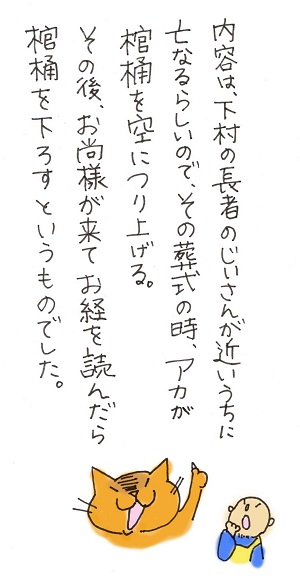 内容は、下村の長者のじいさんが近いうちに
亡なるらしいので、その葬式の時、アカが
棺桶を空につり上げる。
その後、お尚様が来てお経を読んだら
棺桶を下ろすというものでした。